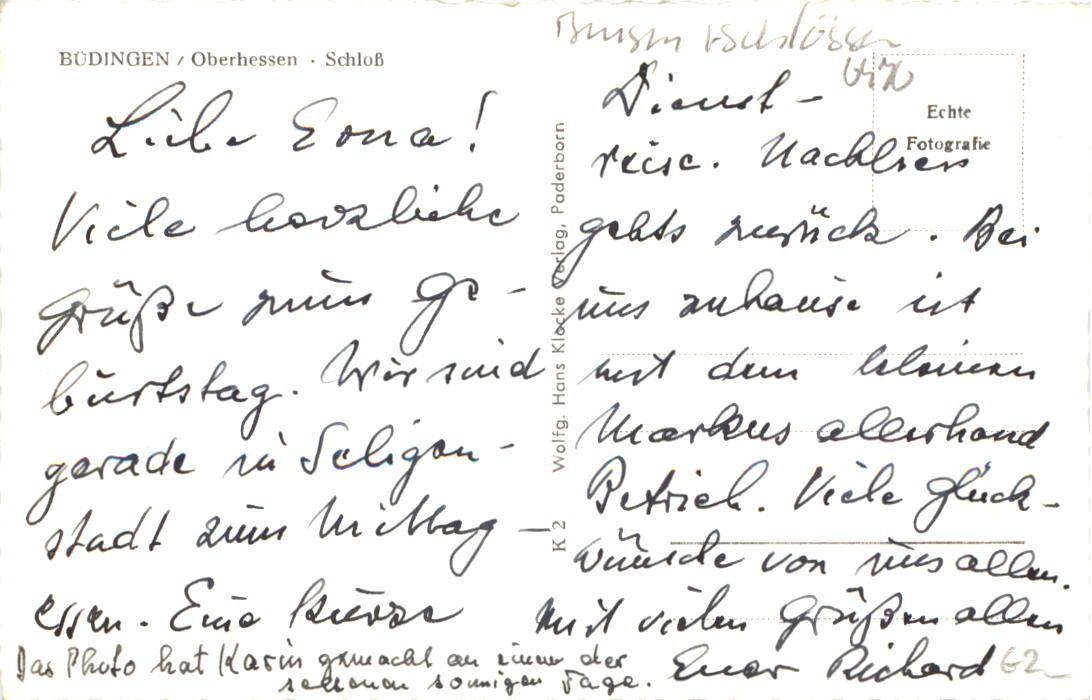 BÜDINGEN / Oberhessen · Schloß
Liebe Erna!
Viele herzliche
Grüße zum Ge-
burtstag. Wir sind
gerade in Seligen-
stadt zum Mittag-
essen. Eine kurze
Dienst-
reise. Nachher
gehts zurück. Bei
uns zuhause ist
mit dem kleinen
Markus allerhand
Betrieb. Viele Glück-
wünsche von uns allen.
Mit vielen Grüßen allen
Euer Richard
Das Photo hat Karin gemacht an einem der
seltenen sonnigen Tage.
Wolfg. Hans Klocke Verlag, Paderborn
K 2
Echte
Fotografie
Burgen + Schlösser
62